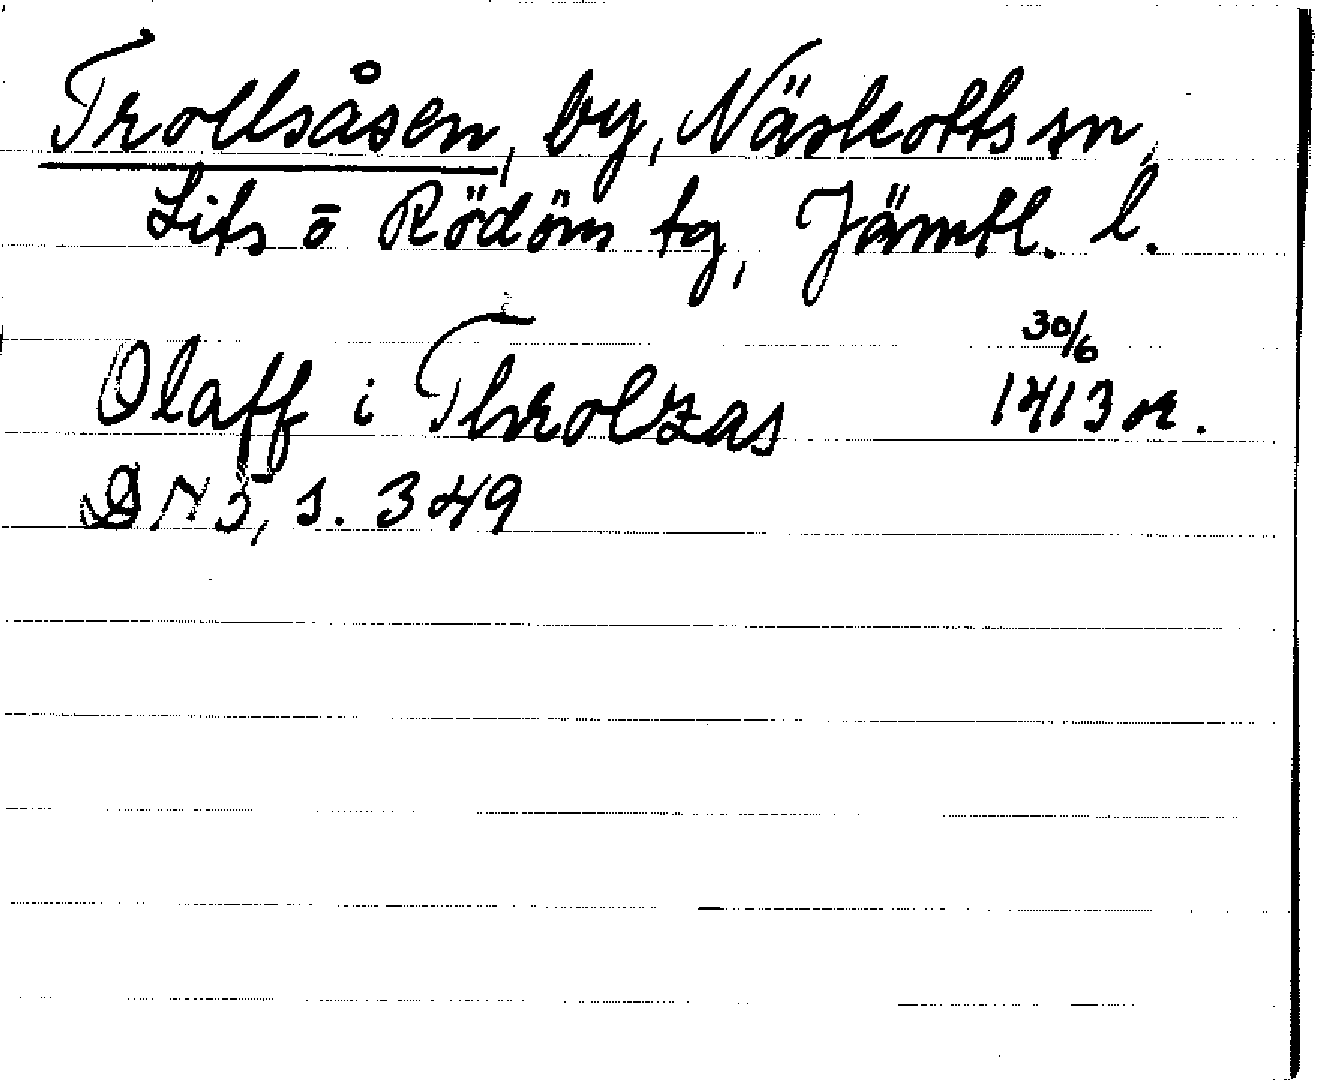 Trollsåsen, by, Näskotts sn,
Lits o Rödöns tg, Jämtl. l.
Olaff i Throlzas 30/6 1413 or.
DN 3, s. 349